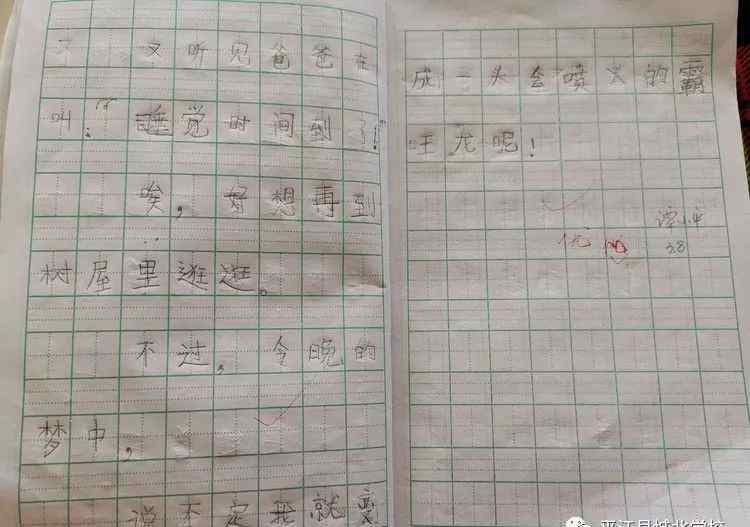 又听见爸爸在
叫:“睡觉时间到了!”
唉,好想再到
树屋里逛逛。
不过,今晚的
梦中,
说不定我就变
成一头会喷火的霸
王龙呢!
优
3.8
平江县城北学校